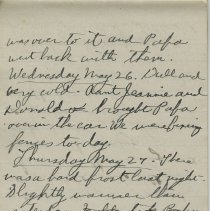 was over to it and Papa
went back with them.
Wednesday May 26. Dull and
very cold. Aunt Jeannie and
Donald brought Papa
over in the car. We were fixing
fences to-day.
Thursday May 27. There
was a hard frost last night.
Slightly warmer than